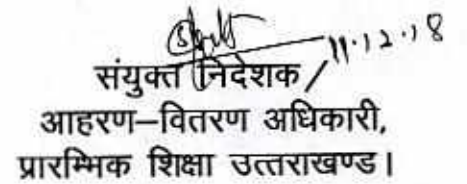 11.12.18
संयुक्त निदेशक /
आहरण–वितरण अधिकारी,
प्रारम्भिक शिक्षा उत्तराखण्ड।